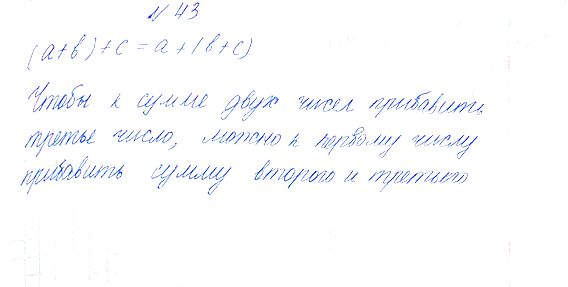 № 43
(a+b)+c=a+(b+c)
Чтобы к сумме двух чисел прибавить
третье число, можно к первому числу
прибавить сумму второго и третьего